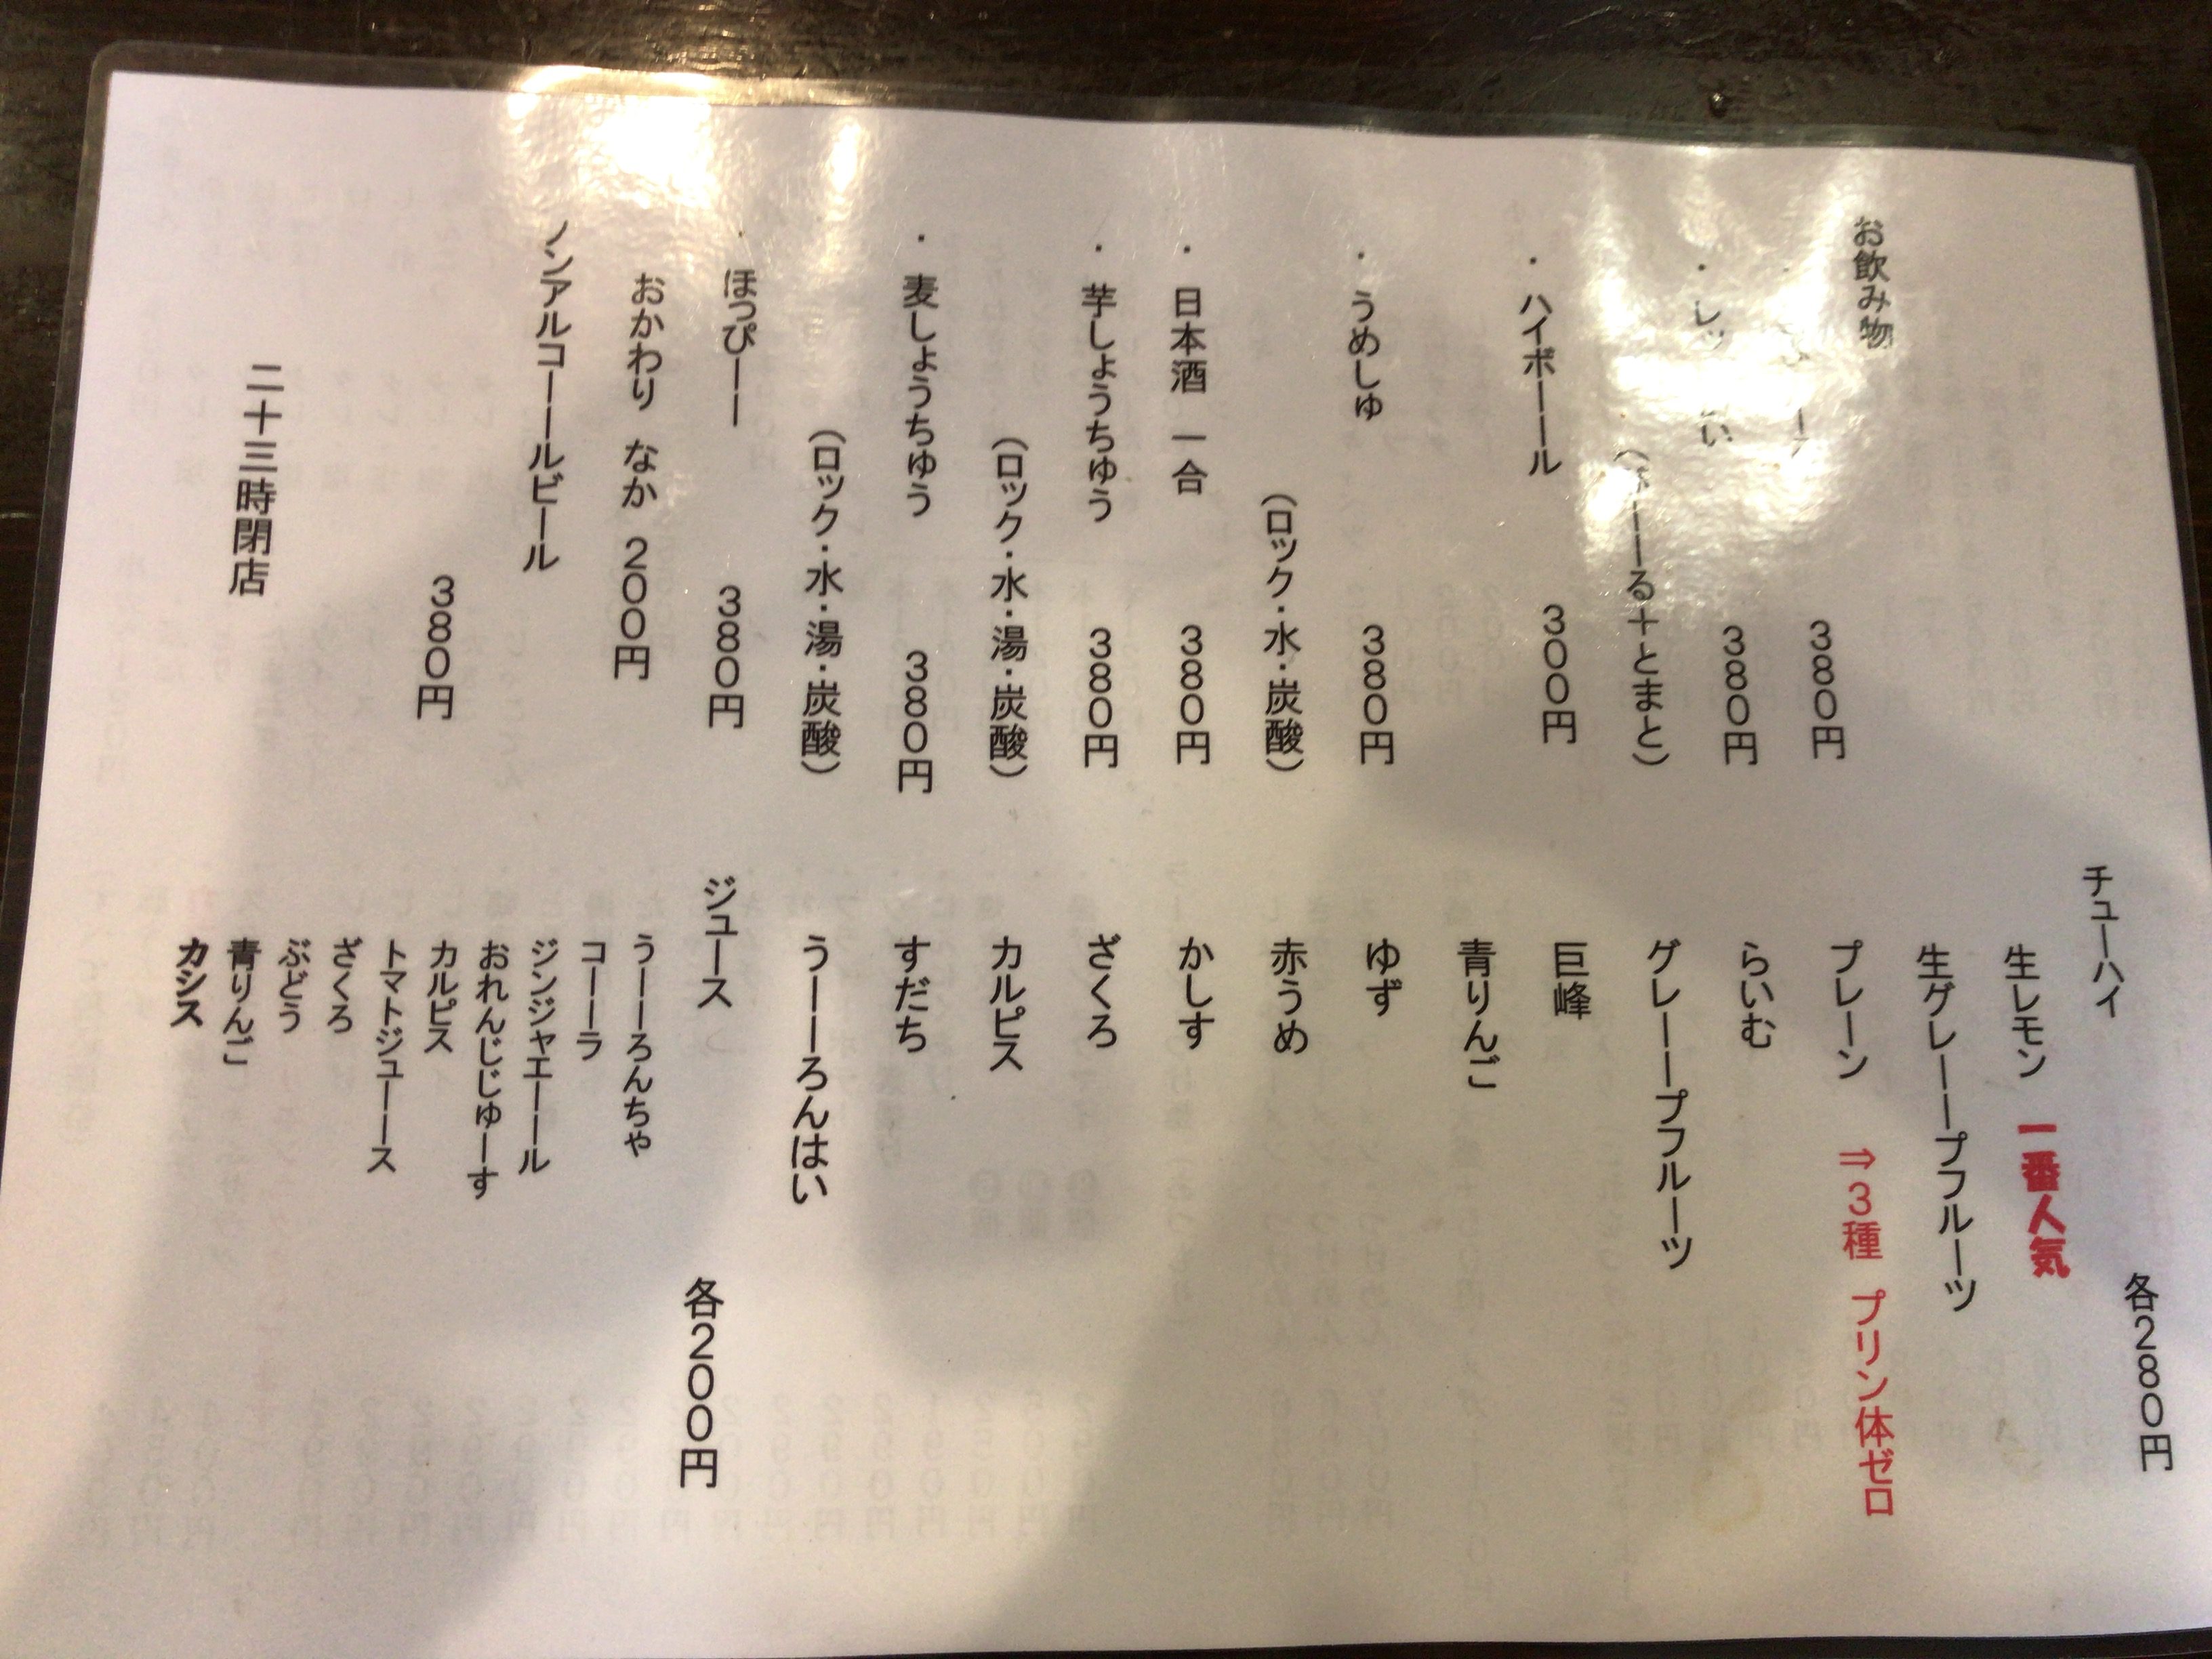 お飲み物
380円
380円
ーーる＋とまと）
・ハイボーール 300円
・うめしゅ 380円
（ロック・水・炭酸）
・日本酒 一合 380円
・芋しょうちゅう 380円
（ロック・水・湯・炭酸）
・麦しょうちゅう 380円
（ロック・水・湯・炭酸）
・ほっぴーー 380円
おかわり なか 200円
ノンアルコーールビール
380円
二十三時閉店
チューハイ 各280円
生レモン 一番人気
生グレーープフルーツ
プレーン ⇒3種 プリン体ゼロ
らいむ
グレーープフルーツ
巨峰
青りんご
ゆず
赤うめ
かしす
ざくろ
カルピス
すだち
うーーろんはい
ジュース 各200円
うーーろんちゃ
コーーラ
ジンジャエーール
おれんじじゅーす
カルピス
トマトジューース
ざくろ
ぶどう
青りんご
カシス